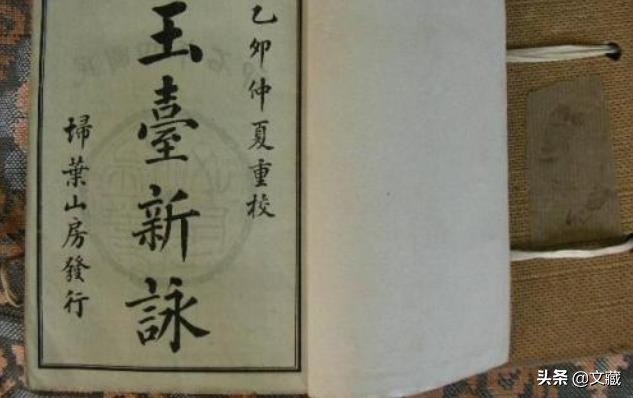 乙夘仲夏重校
玉臺新詠
埽葉山房發行
头条 @文藏